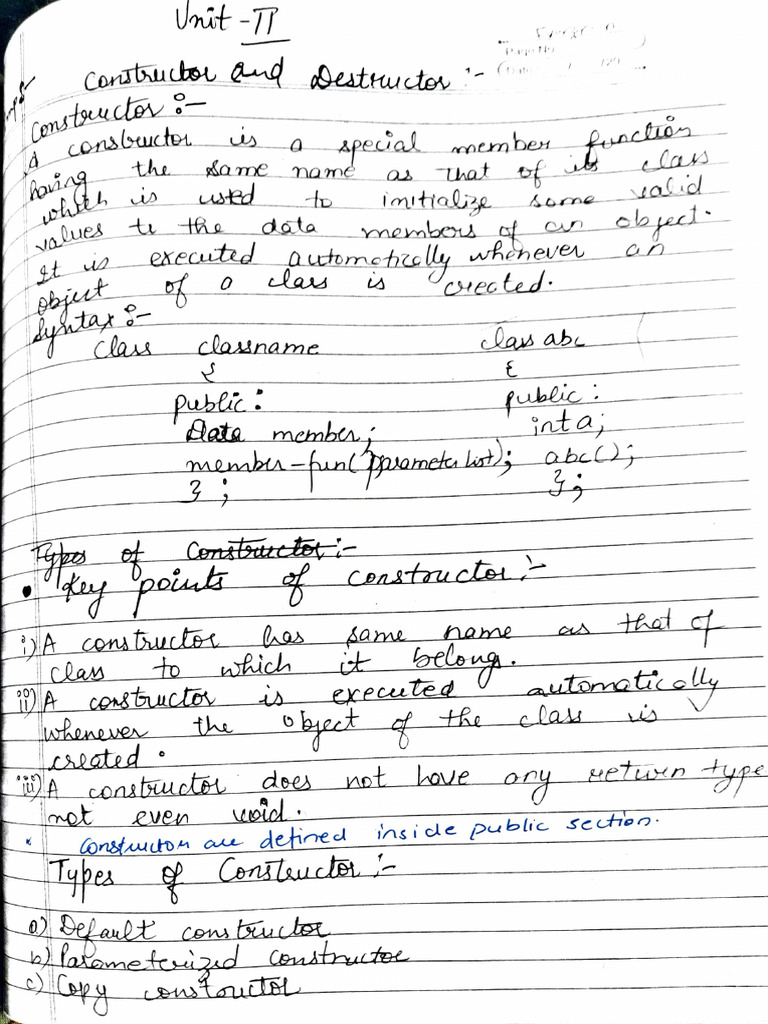 Unit - II
Constructor and Destructor :-
Constructor :-
A constructor is a special member function
having the same name as that of its class
which is used to initialize some valid
values to the data members of an object.
It is executed automatically whenever an
object of a class is created.
Syntax :-
class classname class abc
{ {
public: public:
Data member; int a;
member-fun(parameter list); abc();
}; };
Types of Constructor:-
• Key points of constructor :-
i) A constructor has same name as that of
class to which it belongs.
ii) A constructor is executed automatically
whenever the object of the class is
created.
iii) A constructor does not have any return type
not even void.
* Constructor are defined inside public section.
Types of Constructor :-
a) Default constructor
b) Parameterized constructor
c) Copy constructor